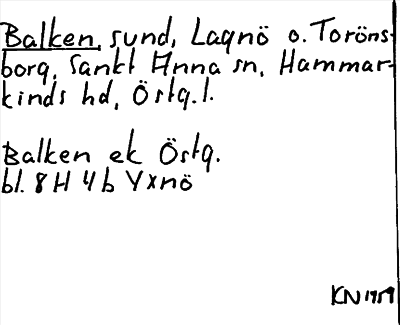 Balken, sund, Lagnö o. Toröns-
borg, Sankt Anna sn, Hammar-
kinds hd, Östg. l.
Balken ek Östg.
bl. 8 H 4 b Yxnö
KN 1959